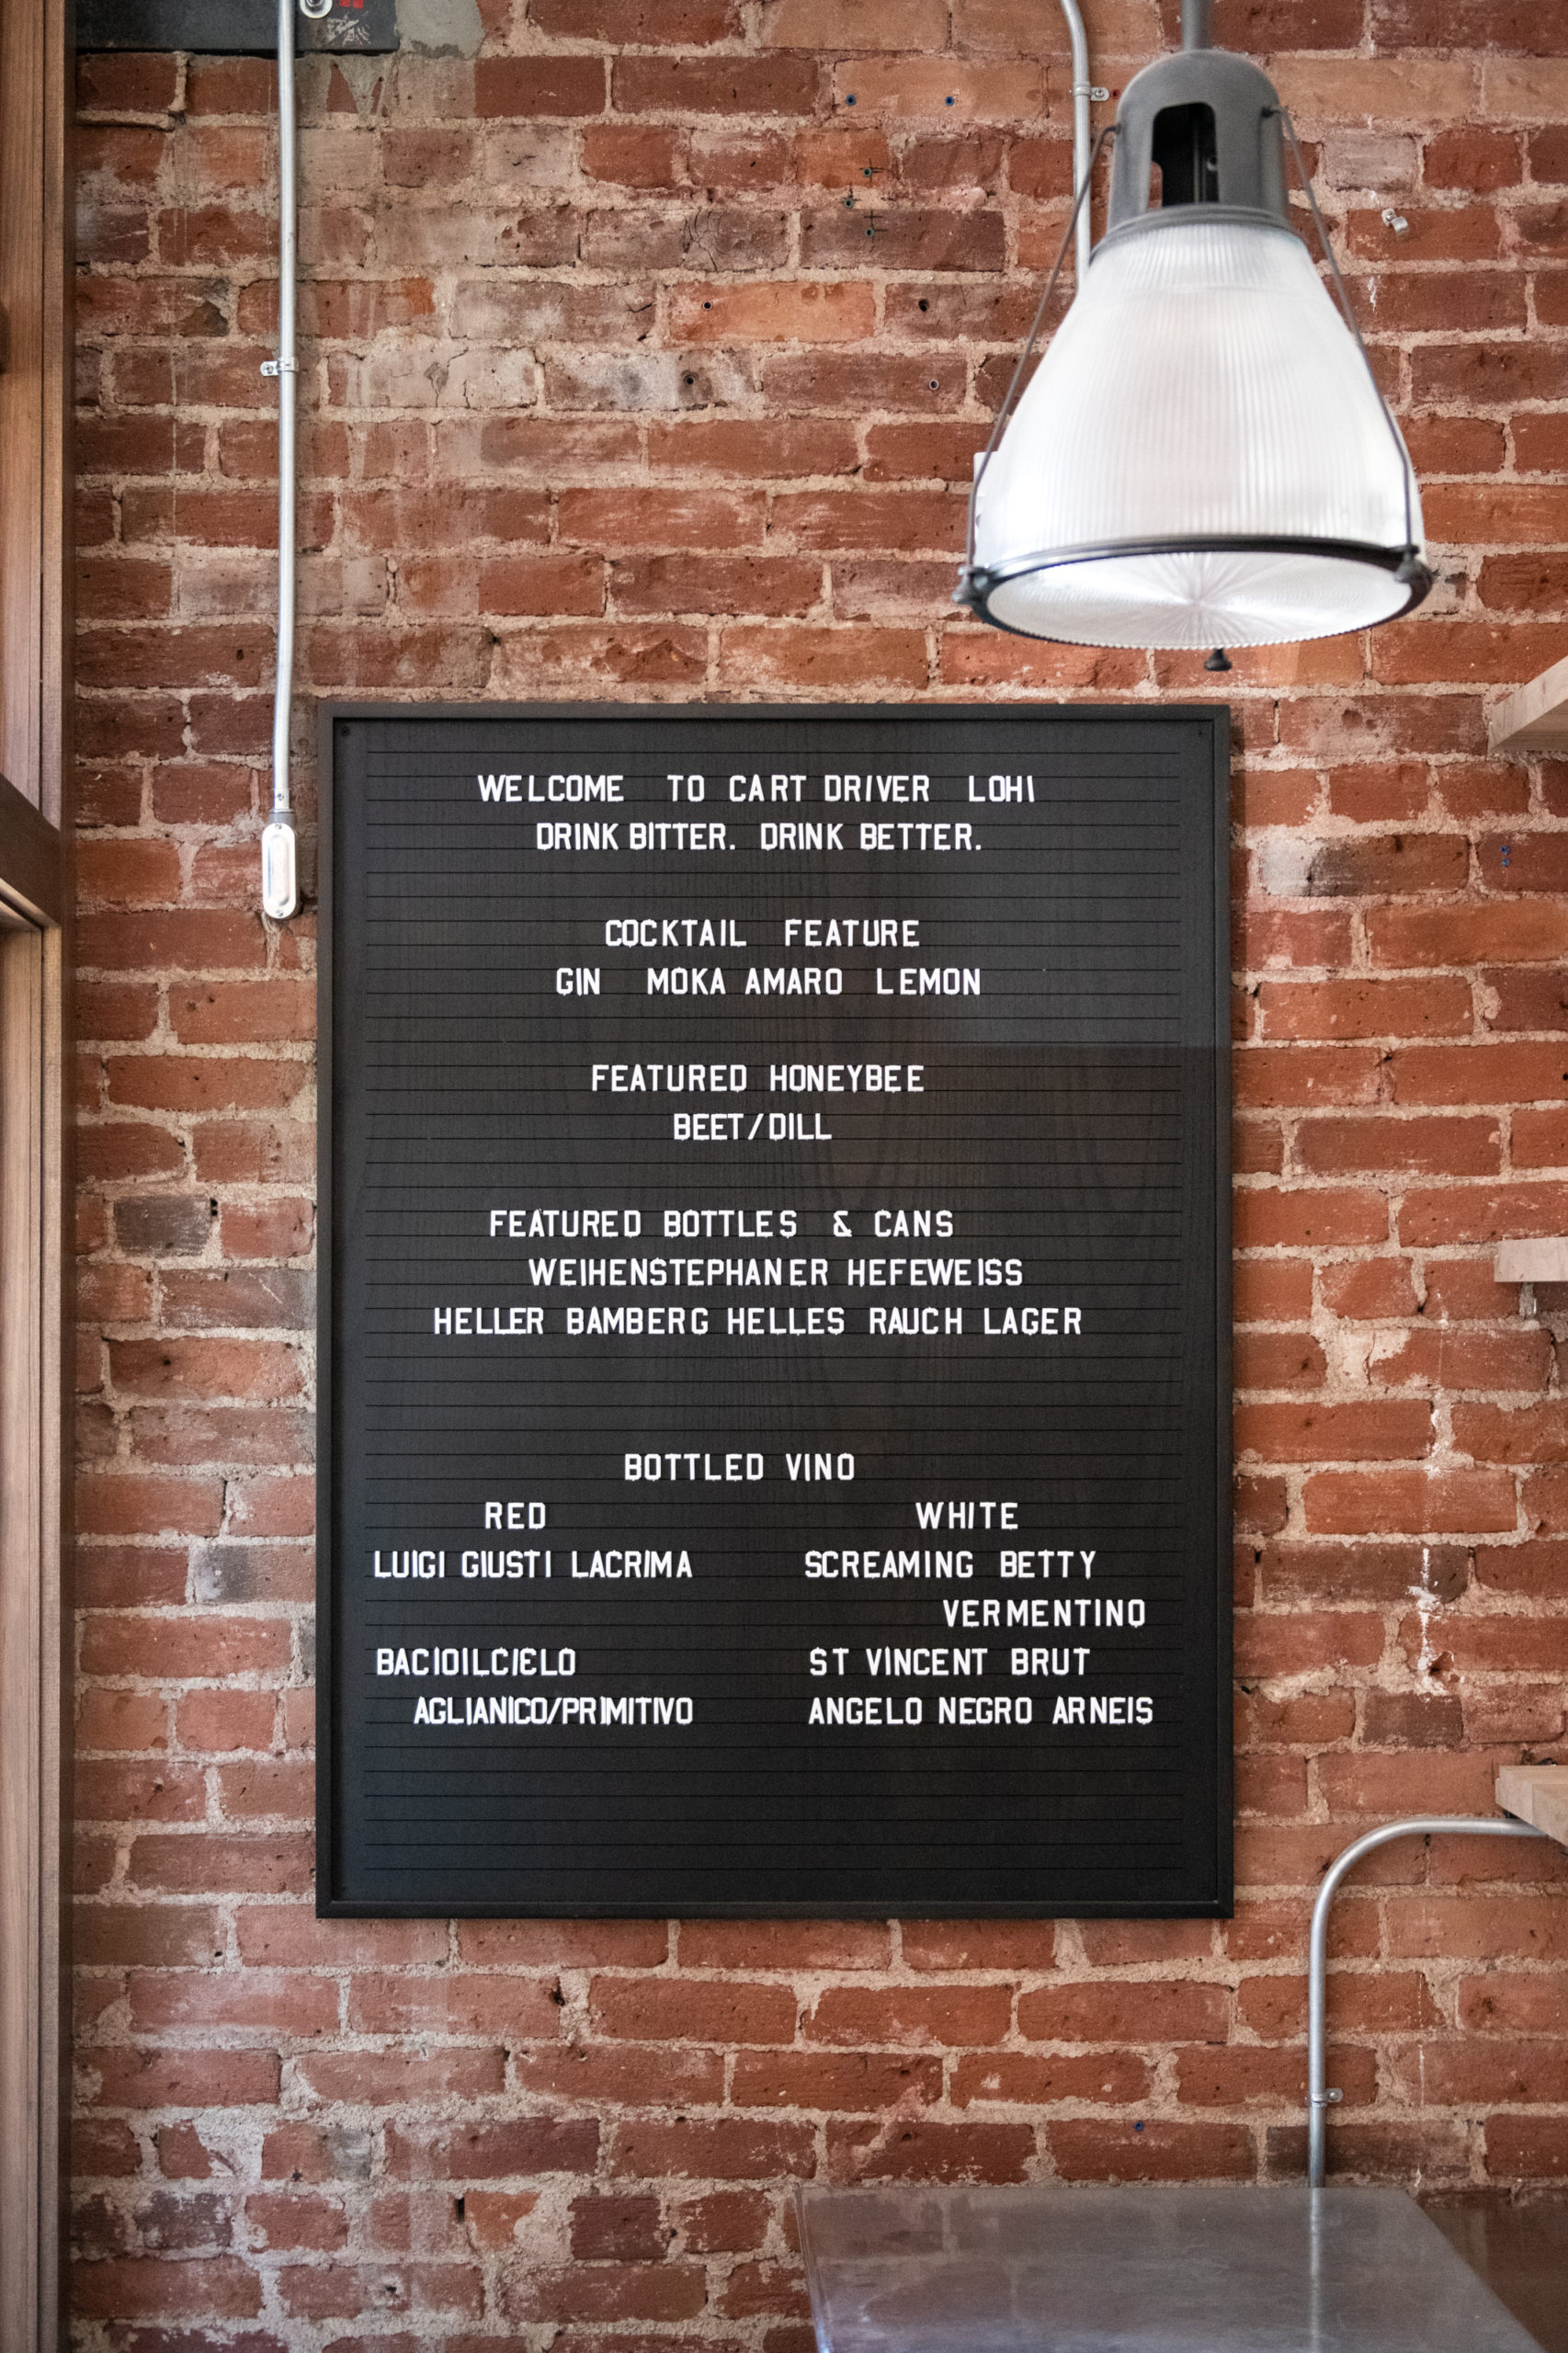 WELCOME TO CART DRIVER LOHI
DRINK BITTER. DRINK BETTER.
COCKTAIL FEATURE
GIN MOKA AMARO LEMON
FEATURED HONEYBEE
BEET/DILL
FEATURED BOTTLES & CANS
WEIHENSTEPHANER HEFEWEISS
HELLER BAMBERG HELLES RAUCH LAGER
BOTTLED VINO
RED
LUIGI GIUSTI LACRIMA
BACIOILCIELO
AGLIANICO/PRIMITIVO
WHITE
SCREAMING BETTY
VERMENTINO
ST VINCENT BRUT
ANGELO NEGRO ARNEIS